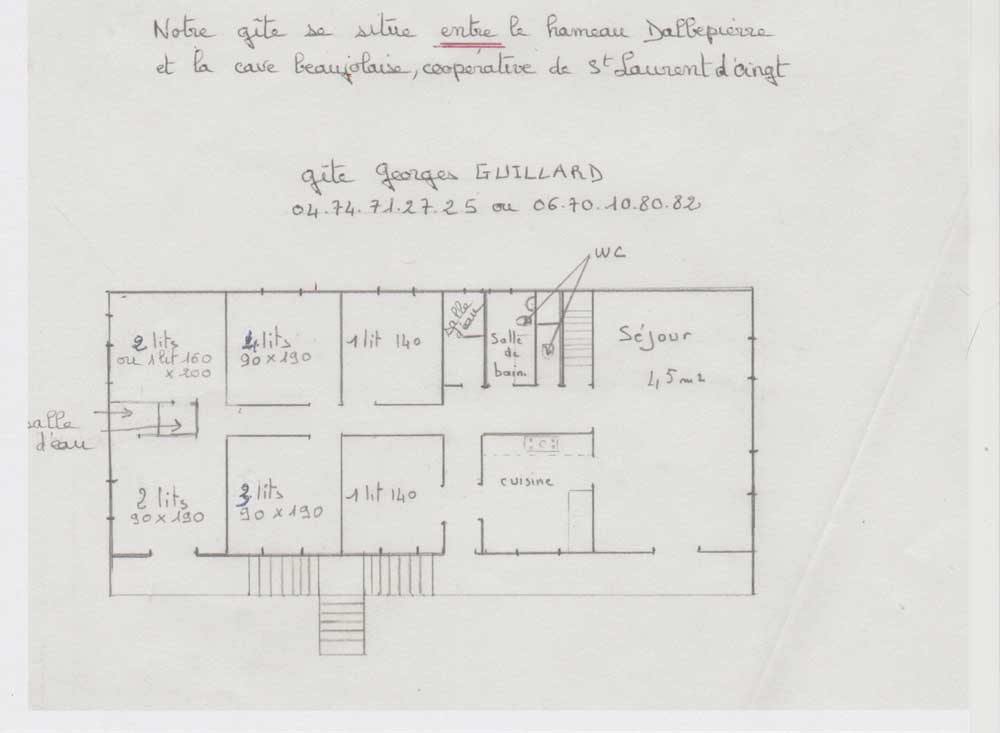 Notre gîte se situe entre le hameau Dalbepierre
et la cave beaujolaise, coopérative de St Laurent d'oingt
gîte Georges GUILLARD
04.74.71.27.25 ou 06.70.10.80.82
WC
2 lits
ou 1 lit 160
x 200
4 lits
90 x 190
1 lit 140
Salle
d'eau
Salle
de
bain
Séjour
45 m2
salle
d'eau
2 lits
90 x 190
3 lits
90 x 190
1 lit 140
cuisine